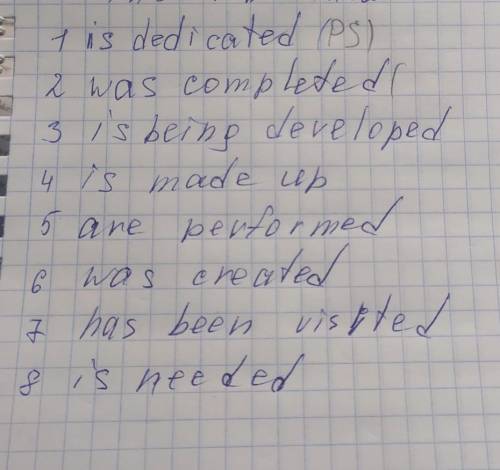 1 is dedicated (PS)
2 was completed(
3 is being developed
4 is made up
5 are performed
6 was created
7 has been visited
8 is needed